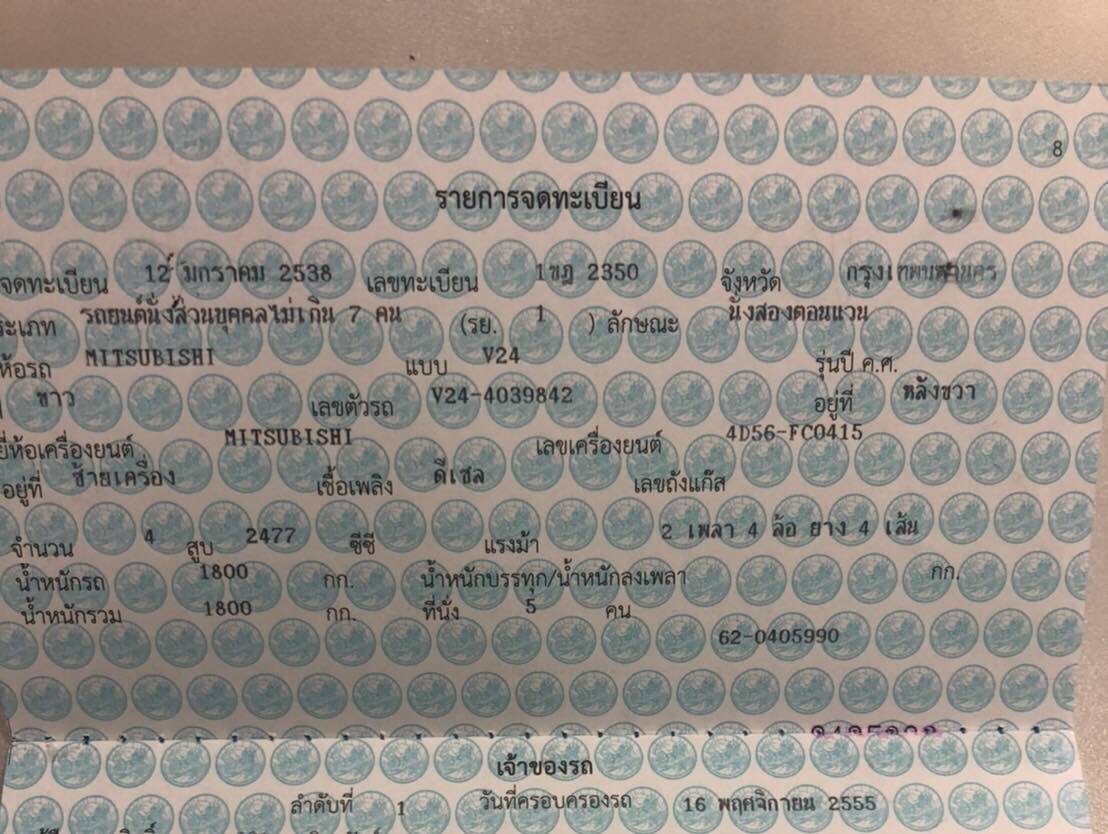 8
รายการจดทะเบียน
จดทะเบียน 12 มกราคม 2538 เลขทะเบียน 1ขฎ 2350 จังหวัด กรุงเทพมหานคร
ระเภท รถยนต์นั่งส่วนบุคคลไม่เกิน 7 คน (รย. 1 ) ลักษณะ นั่งสองตอนแวน
ห้อรถ MITSUBISHI แบบ V24 รุ่นปี ค.ศ.
ขาว เลขตัวรถ V24-4039842 อยู่ที่ หลังขวา
ยี่ห้อเครื่องยนต์ MITSUBISHI เลขเครื่องยนต์ 4D56-FC0415
อยู่ที่ ซ้ายเครื่อง เชื้อเพลิง ดีเซล เลขถังแก๊ส
จำนวน 4 สูบ 2477 ซีซี แรงม้า 2 เพลา 4 ล้อ ยาง 4 เส้น
น้ำหนักรถ 1800 กก. น้ำหนักบรรทุก/น้ำหนักลงเพลา กก.
น้ำหนักรวม 1800 กก. ที่นั่ง 5 คน
62-0405990
เจ้าของรถ
ลำดับที่ 1 วันที่ครอบครองรถ 16 พฤศจิกายน 2555